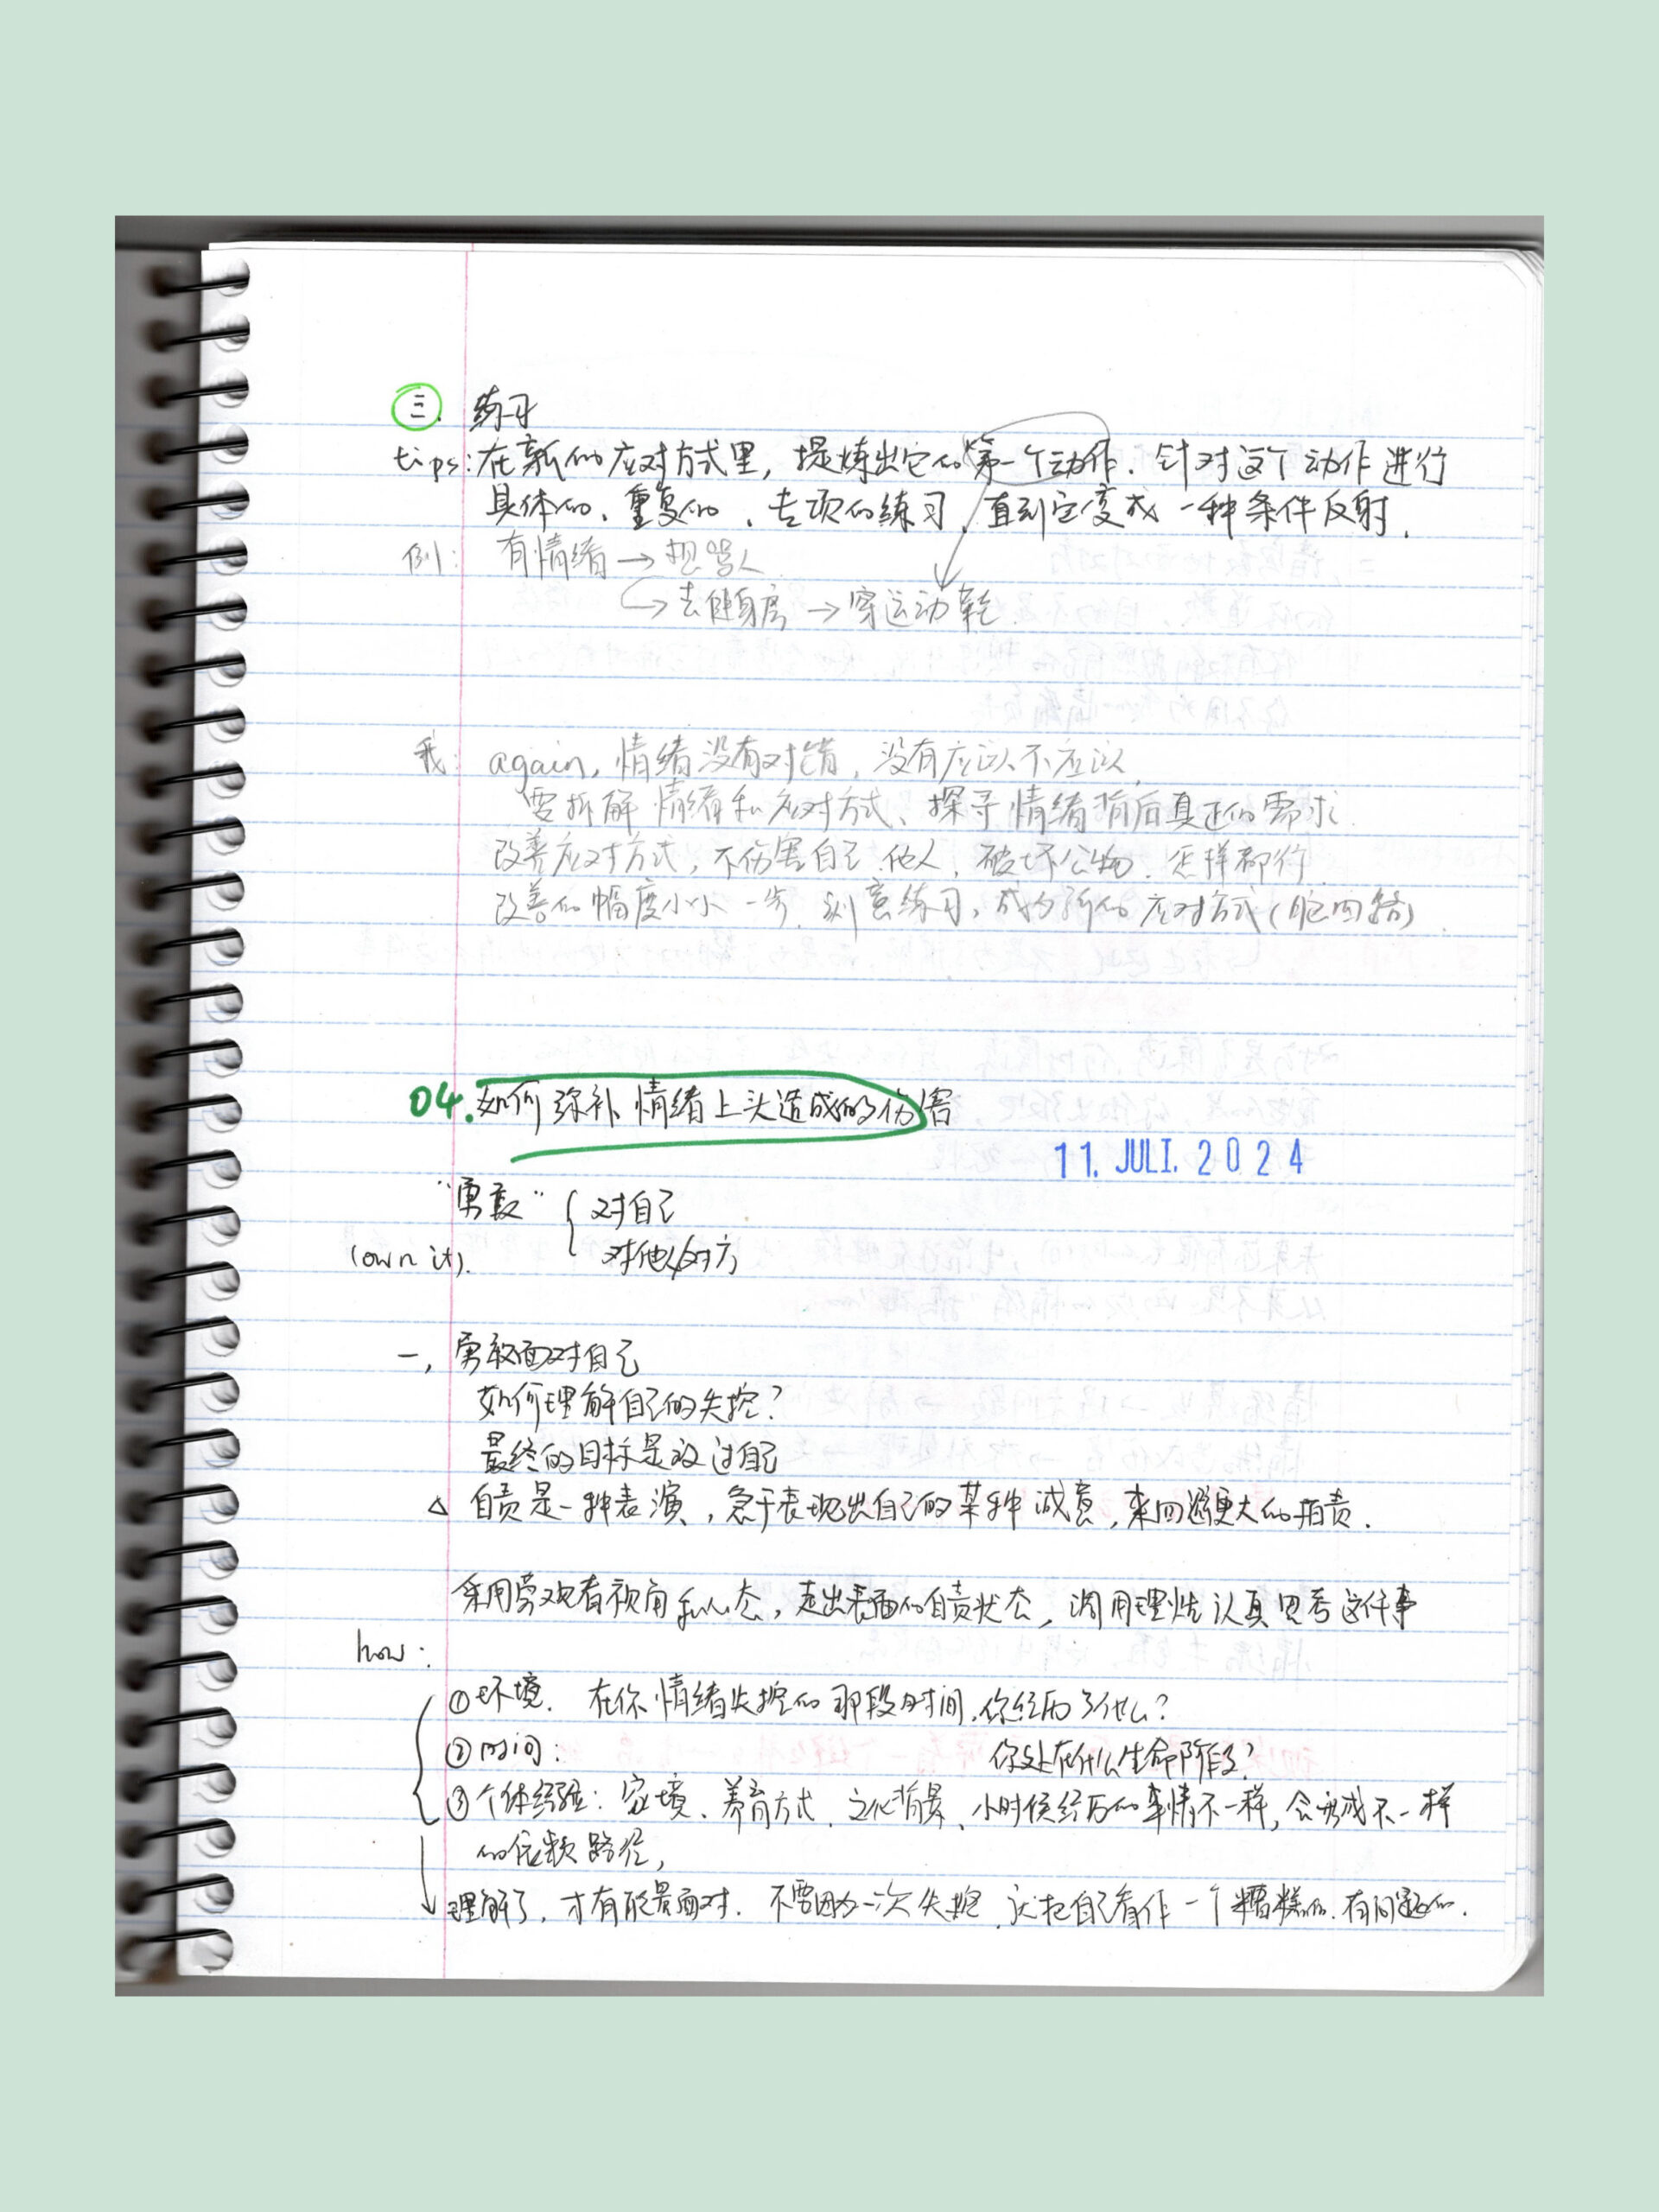 三. 练习
tips: 在新的应对方式里, 提炼出它的第一个动作. 针对这个动作进行
具体的、重复的、专项的练习, 直到它变成一种条件反射.
例: 有情绪→想骂人
→去健身房→穿运动鞋.
我: again, 情绪没有对错, 没有应该不应该,
要拆解情绪和应对方式、探寻情绪背后真正的需求.
改善应对方式, 不伤害自己、他人, 破坏公物. 怎样都行.
改善的幅度小小一步. 刻意练习, 成为新的应对方式(脑回路).
04. 如何弥补情绪上头造成的伤害
11. JULI. 2024
"勇敢" { 对自己
(own it). 对他人/对方
一, 勇敢面对自己
如何理解自己的失控?
最终的目标是放过自己
△ 自责是一种表演, 急于表现出自己的某种诚意, 来回避更大的指责.
采用旁观者视角和心态, 走出表面的自责状态, 调用理性认真思考这件事
how:
①环境. 在你情绪失控的那段时间, 你经历了什么?
②时间: 你处在什么生命阶段?
③个体经验: 家境、养育方式、文化背景、小时候经历的事情不一样, 会形成不一样
的依赖路径,
理解了, 才有能量面对. 不要因为一次失控, 就把自己看作一个糟糕的. 有问题的.